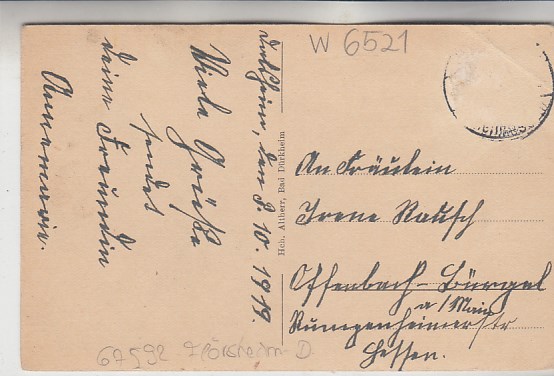 W 6521
Dalsheim, den 8.10.1919.
Viele Grüße
sendet
deine Freundin
Annemarie.
Hch. Altherr, Bad Dürkheim
An Fräulein
Irene Rausch
Offenbach-Bürgel
a/Main
Rumpenheimerstr
Hessen.
67592 Flörsheim-D.